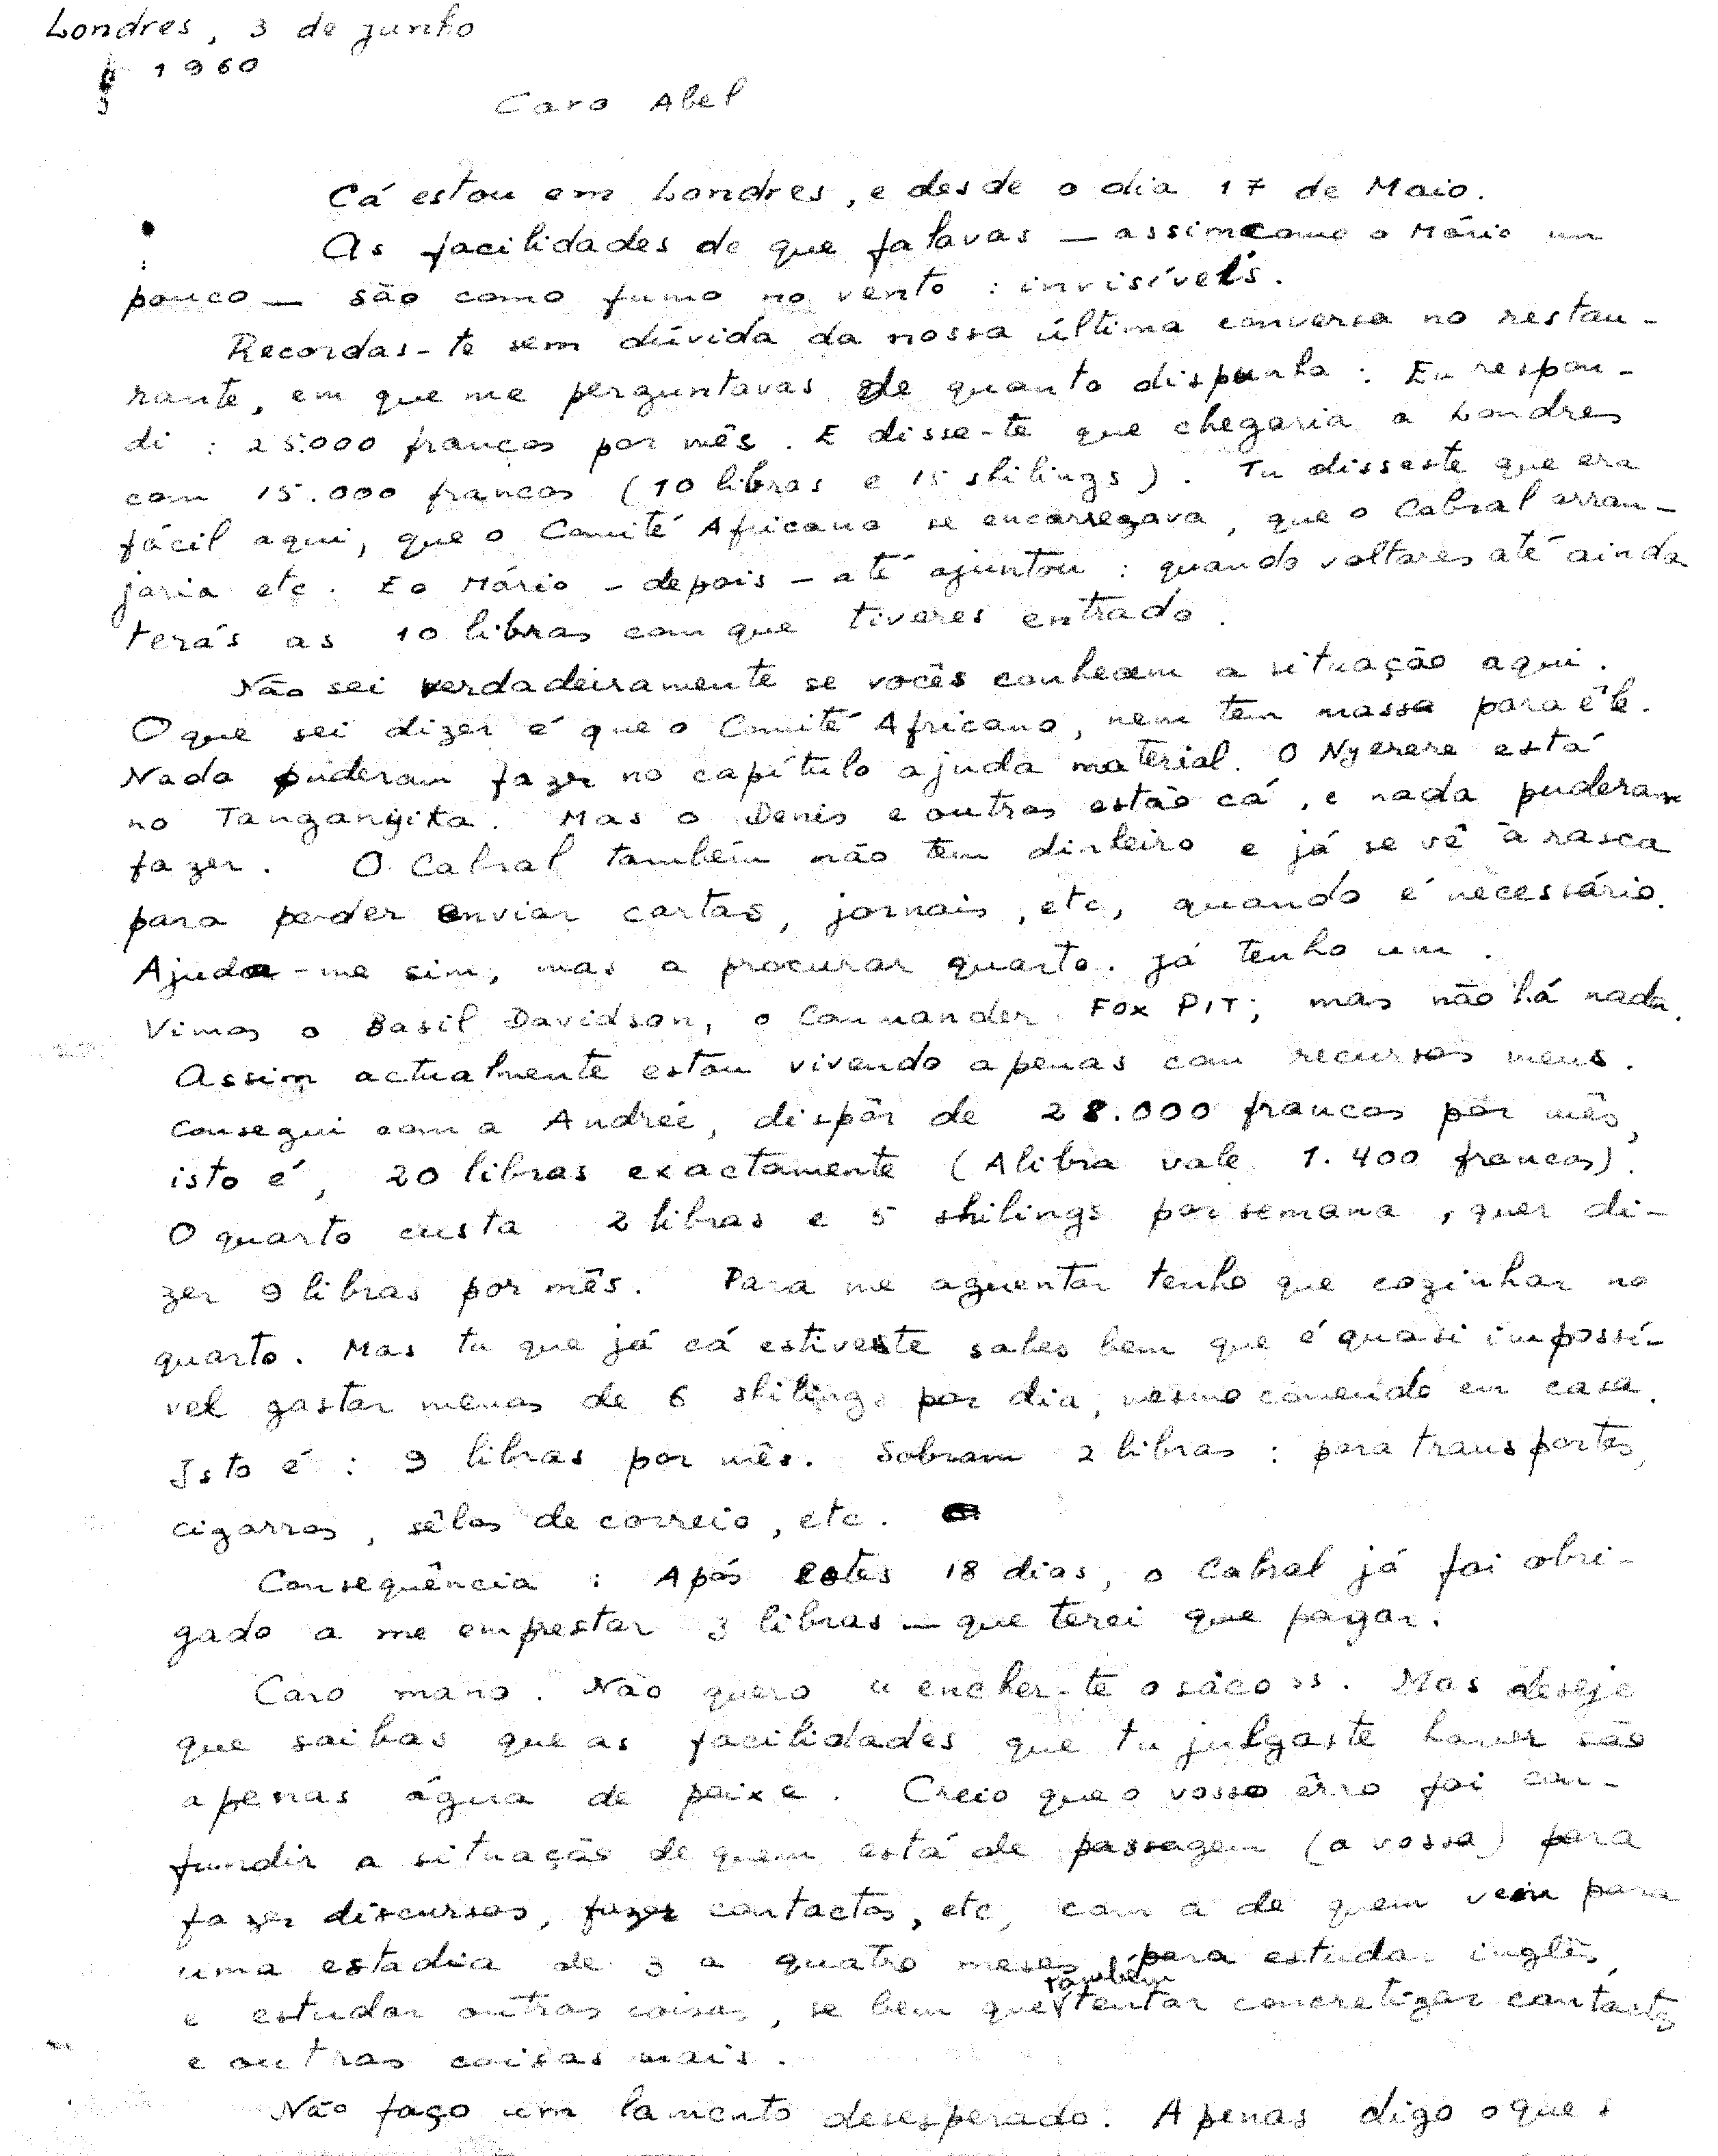 Londres, 3 de junho
1960
Caro Abel
Cá estou em Londres, e desde o dia 17 de Maio.
As facilidades de que falavas — assim como o Mário um
pouco — são como fumo no vento : invisíveis.
Recordas-te sem dúvida da nossa última conversa no restau-
rante, em que me perguntavas de quanto dispunha : Eu respon-
di : 25.000 francos por mês. E disse-te que chegaria a Londres
com 15.000 francos (10 libras e 15 shilings). Tu disseste que era
fácil aqui, que o Comité Africano se encarregava, que o Cabral arran-
jaria etc. E o Mário - depois - até ajuntou : quando voltares até ainda
terás as 10 libras com que tiveres entrado.
Não sei verdadeiramente se vocês conhecem a situação aqui.
O que sei dizer é que o Comité Africano, nem tem massa para êle.
Nada puderam fazer no capítulo ajuda material. O Nyerere está
no Tanganyika. Mas o Denis e outros estão cá, e nada puderam
fazer. O Cabral também não tem dinheiro e já se vê à rasca
para poder enviar cartas, jornais, etc, quando é necessário.
Ajuda-me sim, mas a procurar quarto. Já tenho um.
Vimos o Basil Davidson, o Commander FOX PIT; mas não há nada.
Assim actualmente estou vivendo apenas com recursos meus.
Consegui com a Andrée, dispôr de 28.000 francos por mês,
isto é, 20 libras exactamente (A libra vale 1.400 francos).
O quarto custa 2 libras e 5 shilings por semana, quer di-
zer 9 libras por mês. Para me aguentar tenho que cozinhar no
quarto. Mas tu que já cá estiveste sabes bem que é quasi impossí-
vel gastar menos de 6 shilings por dia, mesmo comendo em casa.
Isto é : 9 libras por mês. Sobram 2 libras : para transportes,
cigarros, sêlos de correio, etc.
Consequência : Após estes 18 dias, o Cabral já foi obri-
gado a me emprestar 3 libras — que terei que pagar.
Caro mano. Não quero "encher-te o saco". Mas desejo
que saibas que as facilidades que tu julgaste haver são
apenas água de peixe. Creio que o vosso êrro foi con-
fundir a situação de quem está de passagem (a vossa) para
fazer discursos, fazer contactos, etc, com a de quem vem para
uma estadia de 3 a quatro meses para estudar inglês,
e estudar outras coisas, se bem que também tentar concretizar contactos
e outras coisas mais.
Não faço um lamento desesperado. Apenas digo o que s